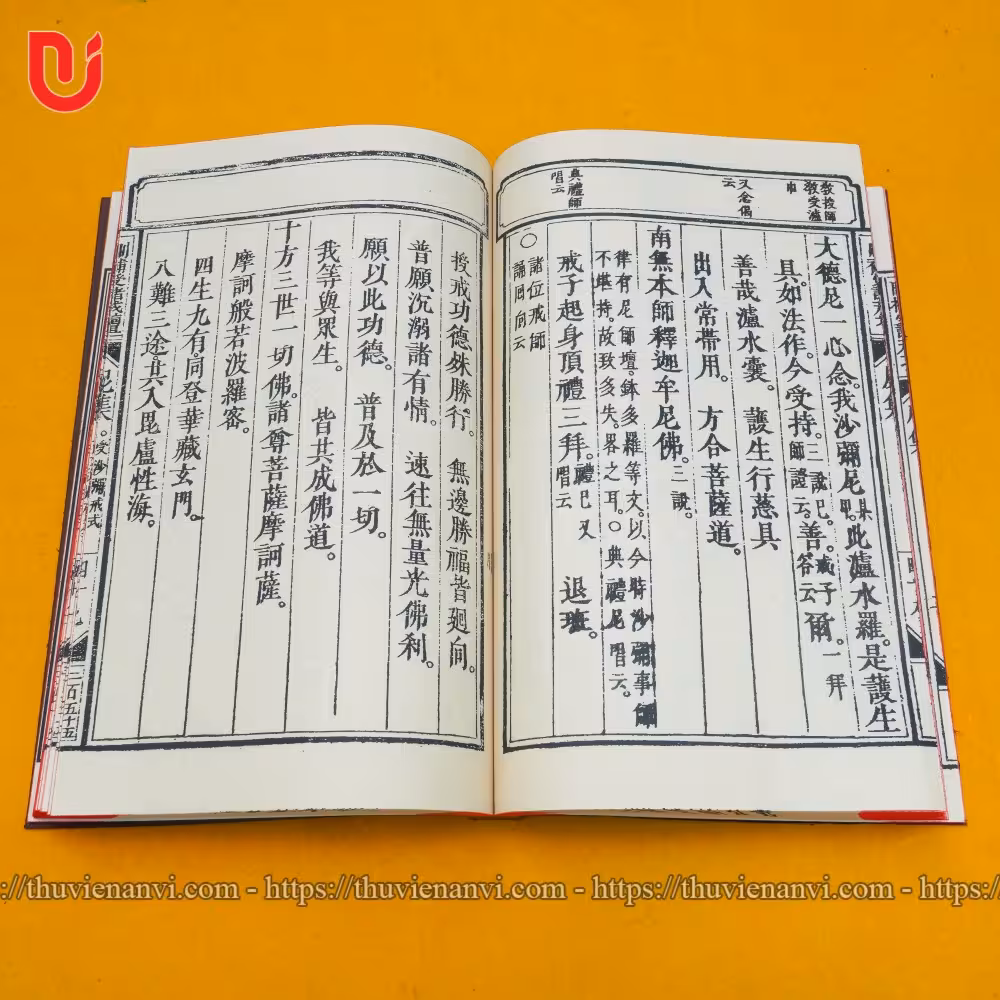 教授師
教受濾
巾
又念偈
云
典禮師
唱云
大德尼一心念。我沙彌尼某甲。此濾水羅。是護生
具。如法作。今受持。三說已。師證云。善。戒子答云。爾。一拜
善哉濾水囊。 護生行慈具
出入常帶用。 方合菩薩道。
南無本師釋迦牟尼佛。三說。
律有尼師壇。鉢多羅等文。以今時沙彌事師
不堪持。故致多失。畧之耳。○典禮尼唱云。
戒子起身頂禮三拜。禮已又唱云 退班。
○諸位戒師
誦回向云
授戒功德殊勝行。 無邊勝福皆廻向。
普願沉溺諸有情。 速往無量光佛刹。
願以此功德。 普及於一切。
我等與眾生。 皆共成佛道。
十方三世一切佛。諸尊菩薩摩訶薩。
摩訶般若波羅密。
四生九有。同登華藏玄門。
八難三途。共入毘盧性海。
受沙彌戒式
三百五十五
://thuvienanvi.com - https://thuvienanvi.com - https://thuvienanvi.com - https://